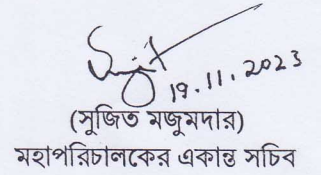 19.11.2023
(সুজিত মজুমদার)
মহাপরিচালকের একান্ত সচিব